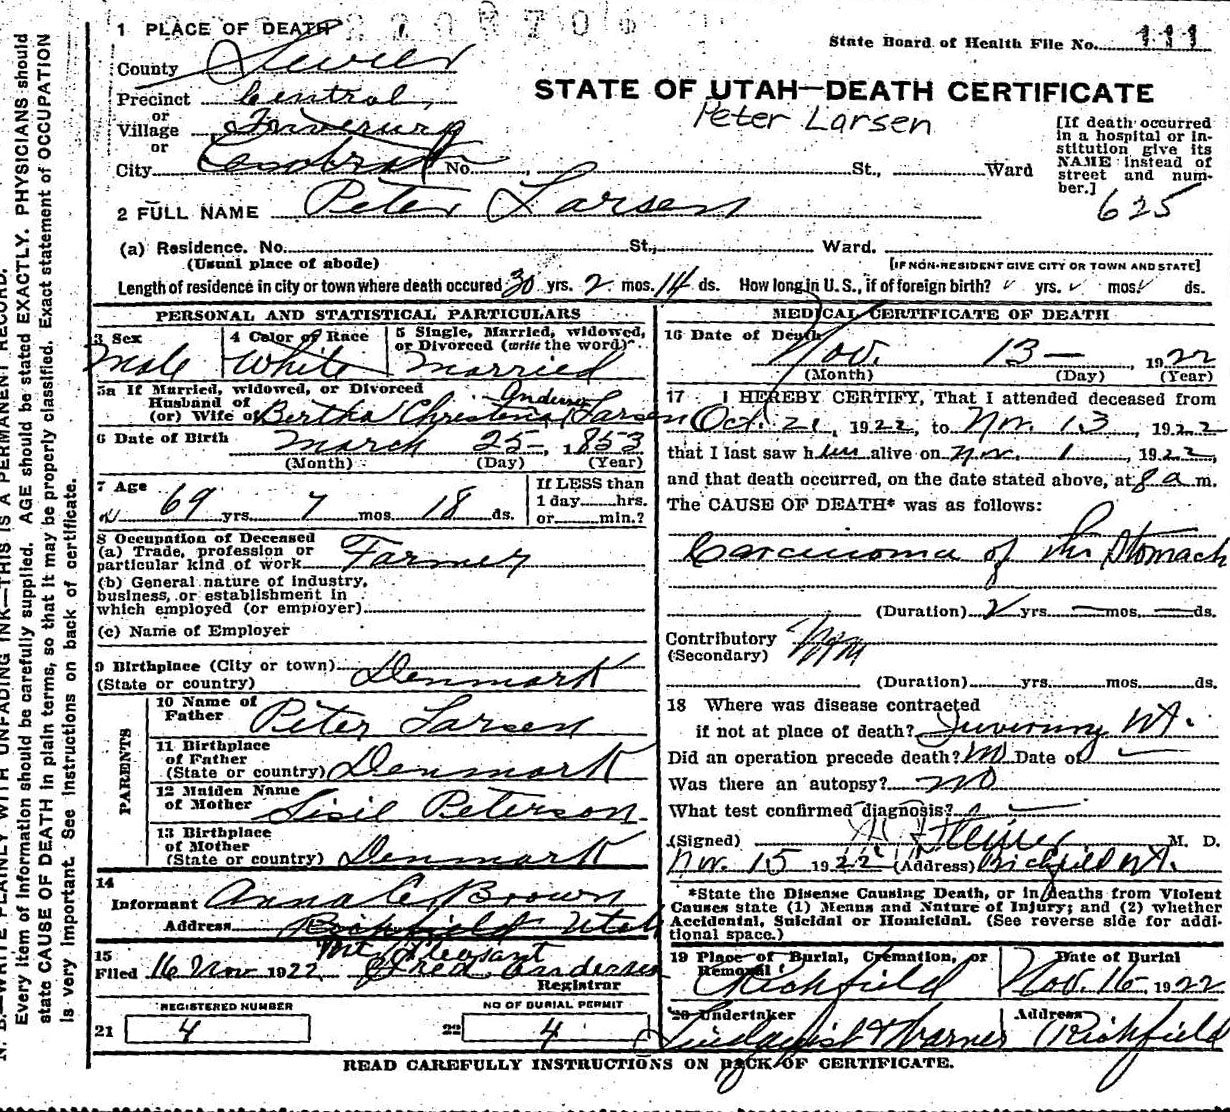 1 PLACE OF DEATH
State Board of Health File No. 111
County Sevier
STATE OF UTAH—DEATH CERTIFICATE
Precinct Central
Peter Larsen
or
Village
or
City No. St., Ward
[If death occurred in a hospital or institution give its NAME instead of street and number.]
625
2 FULL NAME Peter Larsen
(a) Residence. No. St., Ward.
(Usual place of abode)
[IF NON-RESIDENT GIVE CITY OR TOWN AND STATE]
Length of residence in city or town where death occured 30 yrs. 2 mos. 14 ds. How long in U.S., if of foreign birth? yrs. mos. ds.
PERSONAL AND STATISTICAL PARTICULARS
3 Sex 4 Color of Race 5 Single, Married, widowed, or Divorced (write the word)
Male White Married
5a If Married, widowed, or Divorced
Husband of
(or) Wife of Bertha Christena Larsen
6 Date of Birth March 25 — , 1853
(Month) (Day) (Year)
7 Age 69 yrs. 7 mos. 18 ds.
If LESS than
1 day hrs.
or min.?
8 Occupation of Deceased
(a) Trade, profession or
particular kind of work Farmer
(b) General nature of industry,
business, or establishment in
which employed (or employer)
(c) Name of Employer
9 Birthplace (City or town)
(State or country) Denmark
PARENTS
10 Name of
Father Peter Larsen
11 Birthplace
of Father
(State or country) Denmark
12 Maiden Name
of Mother Sisil Peterson
13 Birthplace
of Mother
(State or country) Denmark
14
Informant Anna C. Brown
Address Richfield Utah
Mt Pleasant
15
Filed 16 Nov 1922 Fred Andersen
Registrar
REGISTERED NUMBER NO OF BURIAL PERMIT
21 4 22 4
MEDICAL CERTIFICATE OF DEATH
16 Date of Death
Nov. 13 — 1922
(Month) (Day) (Year)
17 I HEREBY CERTIFY, That I attended deceased from
Oct. 21, 1922, to Nov. 13, 1922
that I last saw him alive on Nov. 1, 1922,
and that death occurred, on the date stated above, at 8 a m.
The CAUSE OF DEATH* was as follows:
Carcinoma of the Stomach
(Duration) 2 yrs. — mos. — ds.
Contributory
(Secondary)
(Duration) yrs. mos. ds.
18 Where was disease contracted
if not at place of death? Ut.
Did an operation precede death? no Date of —
Was there an autopsy? no
What test confirmed diagnosis?
(Signed) M. D.
Nov. 15 1922 (Address) Richfield Ut.
*State the Disease Causing Death, or in deaths from Violent
Causes state (1) Means and Nature of Injury; and (2) whether
Accidental, Suicidal or Homicidal. (See reverse side for addi-
tional space.)
19 Place of Burial, Cremation, or
Removal
Richfield
Date of Burial
Nov. 16, 1922
20 Undertaker Address
Richfield
READ CAREFULLY INSTRUCTIONS ON BACK OF CERTIFICATE.
N. B.—WRITE PLAINLY WITH UNFADING INK—THIS IS A PERMANENT RECORD.
Every item of information should be carefully supplied. AGE should be stated EXACTLY. PHYSICIANS should
state CAUSE OF DEATH in plain terms, so that it may be properly classified. Exact statement of OCCUPATION
is very important. See instructions on back of certificate.